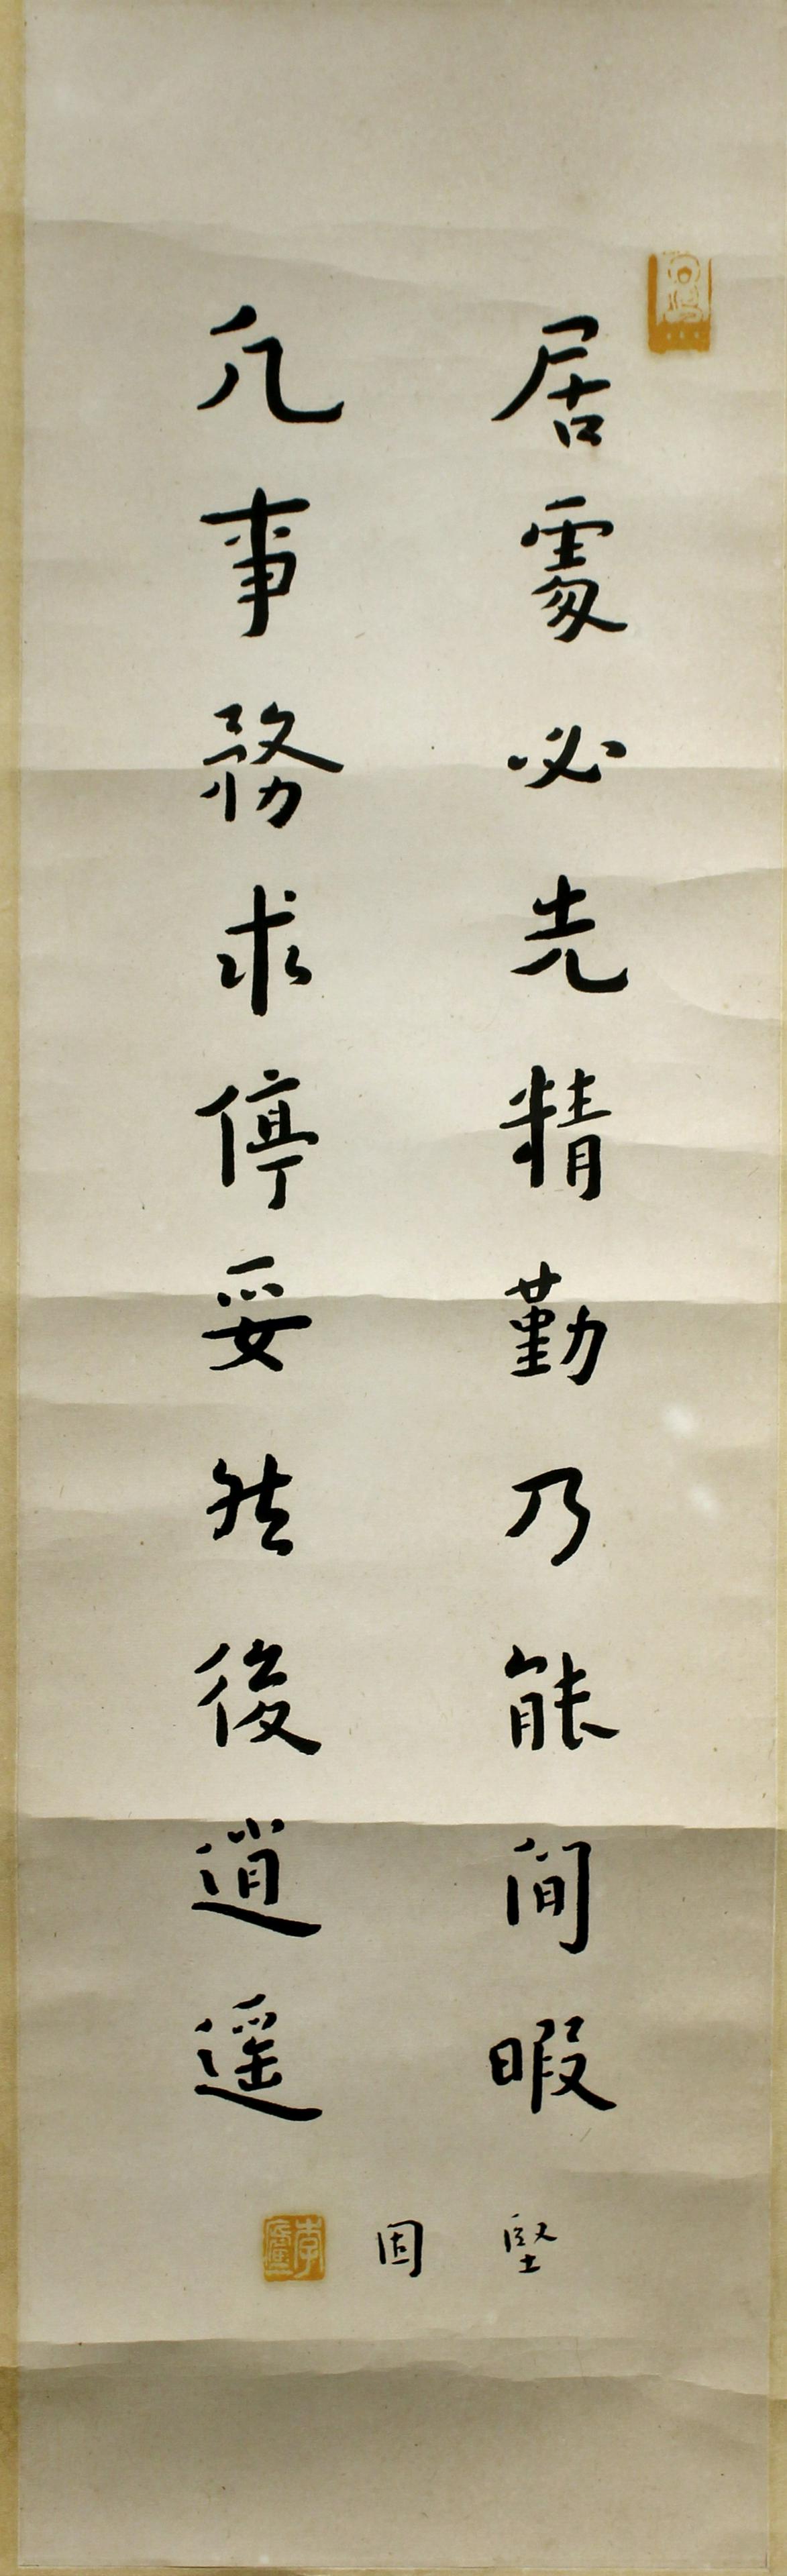 居處必先精勤乃能閒暇
凡事務求停妥然後逍遙
堅固